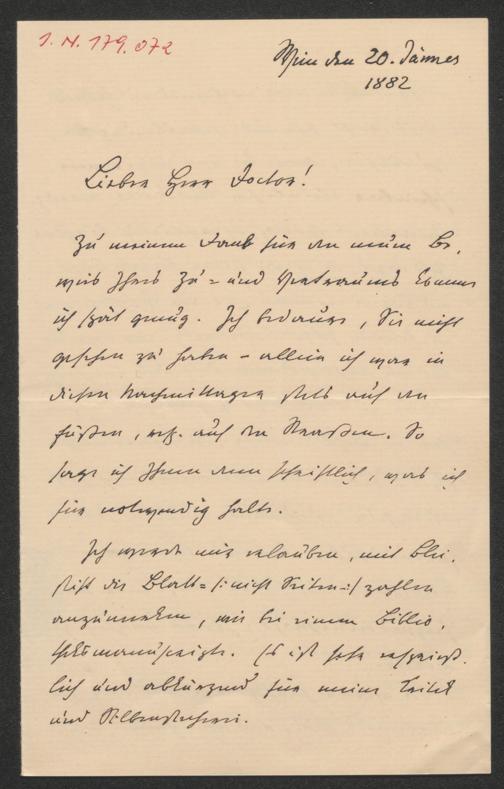 I. N. 179.072
Wien den 20. Jänner
1882
Lieber Herr Doctor!
Zu meinem Dank für den neuen Be-
weis Ihres Zu= und Vertrauens komme
ich spät genug. Ich bedaure, Sie nicht
gesehen zu haben – allein ich war in
diesen Nachmittagen stets auf den
Füßen, resp. auf den Straßen. So
sage ich Ihnen denn schriftlich, was ich
für notwendig halte.
Ich werde mir erlauben, mit Blei-
stift die Blatt= /: nicht Seiten :/ zahlen
anzumerken, wie bei einem Biblio-
theksmanuscripte. Es ist sehr
lich und abkürzend für meine Kritik
und Silbenstecherei.